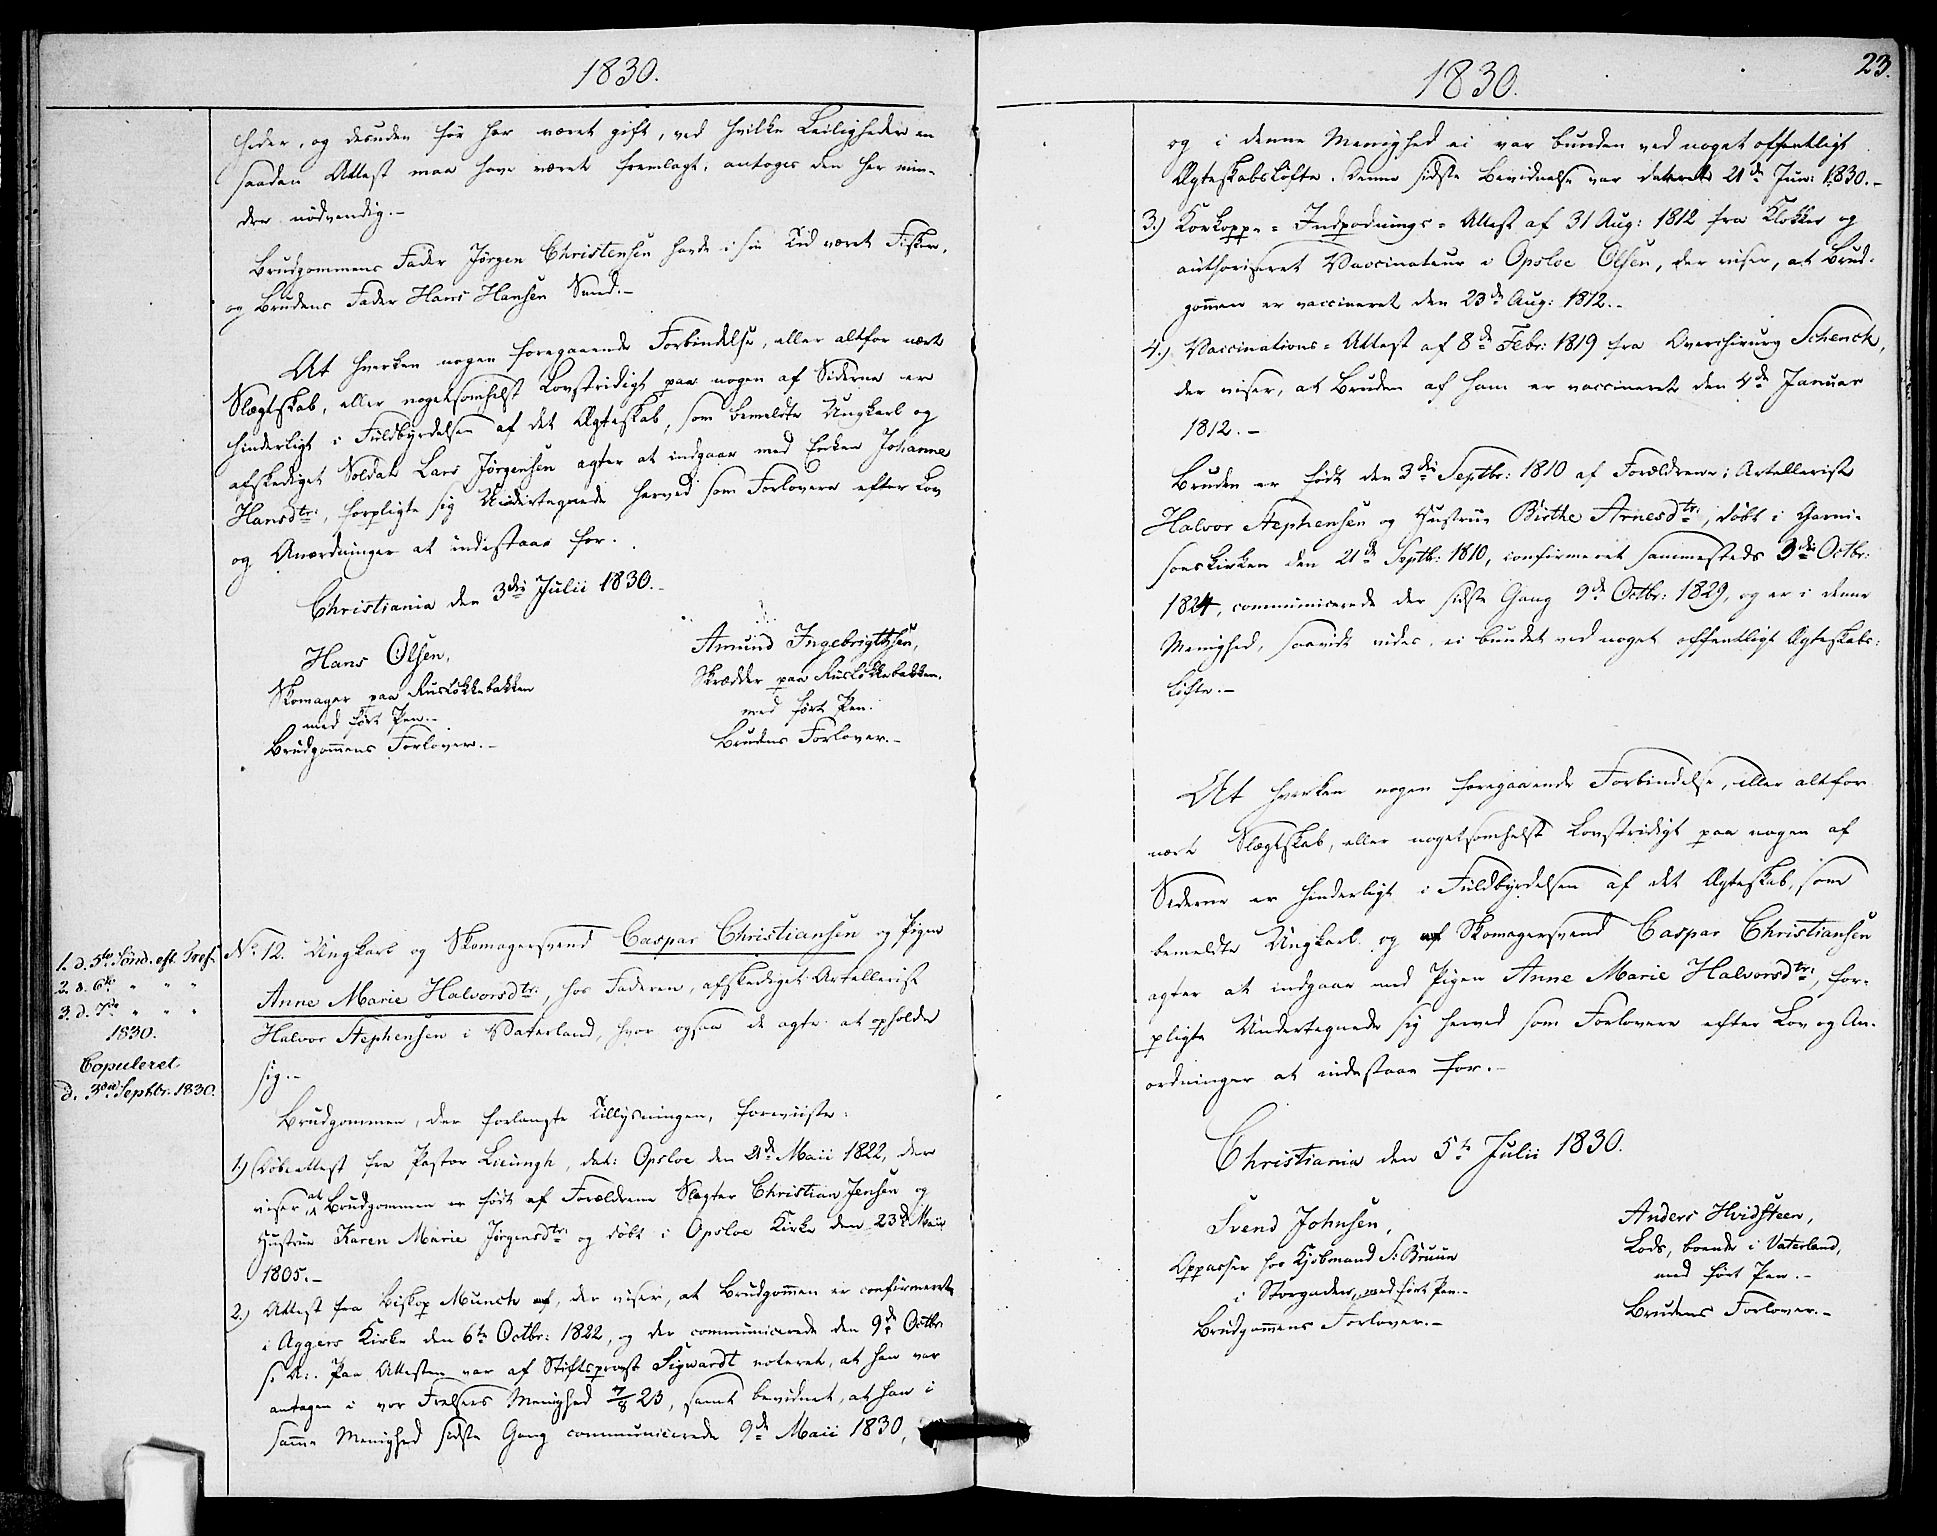 1830.
heder, og desuden før har været gift, ved hvilke Leiligheder en
saadan Attest maa have været fremlagt, antoges den her min-
dre nödvendig.-
Brudgommens Fader Jørgen Christensen havde i sin Tid været Fisker,
og Brudens Fader Hans Hansen Sund.-
At hverken nogen foregaaende Forbindelse, eller altfor nært
Slægtskab, eller nogetsomhelst Lovstridigt paa nogen af Siderne er
hinderligt i Fuldbyrdelsen af det Ægteskab, som bemeldte Ungkarl og
afskediget Soldat Lars Jørgensen agter at indgaae med Enken Johanne
Hansdtr:, forpligte sig Undertegnede herved som Forlovere efter Lov
og Anordninger at indestaae for.
Christiania den 3die Julii 1830.-
Hans Olsen,
Skomager paa Ruslökkebakken
med ført Pen.-
Brudgommens Forlover.-
Amund Ingebrigtsen,
Skrædder paa Ruslökkebakken.
med ført Pen.
Brudens Forlover.-
1. d. 5te Sönd. eft. Tref.
2. d. 6te " " "
3. d. 7de " " "
1830.
Copuleret
d. 3die Septbr. 1830.
No 12. Ungkarl og Skomagersvend Caspar Christiansen og Pigen
Anne Marie Halvorsdtr:, hos Faderen, afskediget Artellerist
Halvor Stephensen i Vaterland, hvor ogsaa de agte at opholde
sig.-
Brudgommen, der forlangte Tillysningen, foreviiste:
1) Döbeattest fra Pastor Lieungh, dat: Opsloe den 2de Maii 1822, der
viser, at Brudgommen er født af Forældrene Slagter Christian Jensen og
Hustrue Karen Marie Jørgensdtr: og döbt i Opsloe Kirke den 23de Maii
1805.-
2.) Attest fra Biskop Munch, der viser, at Brudgommen er confirmeret
i Aggers Kirke den 6te Octbr: 1822, og der communicerede den 9de Octbr
s. A:. Paa Attesten var af Stiftsprovst Sigwardt noteret, at han var
antagen i vor Frelsers Menighed 7/8 23, samt bevidnet, at han i
samme Menighed sidste Gang communicerede 9de Maii 1830,
23.
1830.
og i denne Menighed ei var bunden ved noget offentligt
Ægteskabslöfte. Denne sidste Bevidnelse var dateret 21de Juni 1830.-
3.) Kokoppe-Indpodnings-Attest af 31 Aug: 1812 fra Klokker og
authoriseret Vaccinateur i Opsloe Olsen, der viser, at Brud-
gommen er vaccineret den 23de Aug: 1812.-
4.) Vaccinations-Attest af 8de Febr: 1819 fra Overchirurg Schenck,
der viser, at Bruden af ham er vaccineret den 4de Januar
1812.-
Bruden er född den 3die Septbr: 1810 af Forældrene: Artellerist
Halvor Stephensen og Hustrue Birthe Arnesdtr:, döbt i Garni-
sonskirken den 21de Septbr: 1810, confirmeret sammesteds 3die Octbr:
1824, communicerede der sidste Gang 9de Octbr: 1829, og er i denne
Menighed, saavidt vides, ei bundet ved noget offentligt Ægteskabs-
löfte.-
At hverken nogen foregaaende Forbindelse, eller altfor
nært Slægtskab, eller nogetsomhelst Lovstridigt paa nogen af
Siderne er hinderligt i Fuldbyrdelsen af det Ægteskab, som
bemeldte Ungkarl og Skomagersvend Caspar Christiansen
agter at indgaae med Pigen Anne Marie Halvorsdtr:, for-
pligte Undertegnede sig herved som Forlovere efter Lov og An-
ordninger at indestaae for.-
Christiania den 5te Julii 1830.
Svend Johnsen,
Oppasser hos Kjöbmand S. Bruun
i Storgaden, med ført Pen.-
Brudgommens Forlover.-
Anders Hvidsteen,
Lods, boende i Vaterland,
med ført Pen.-
Brudens Forlover.-